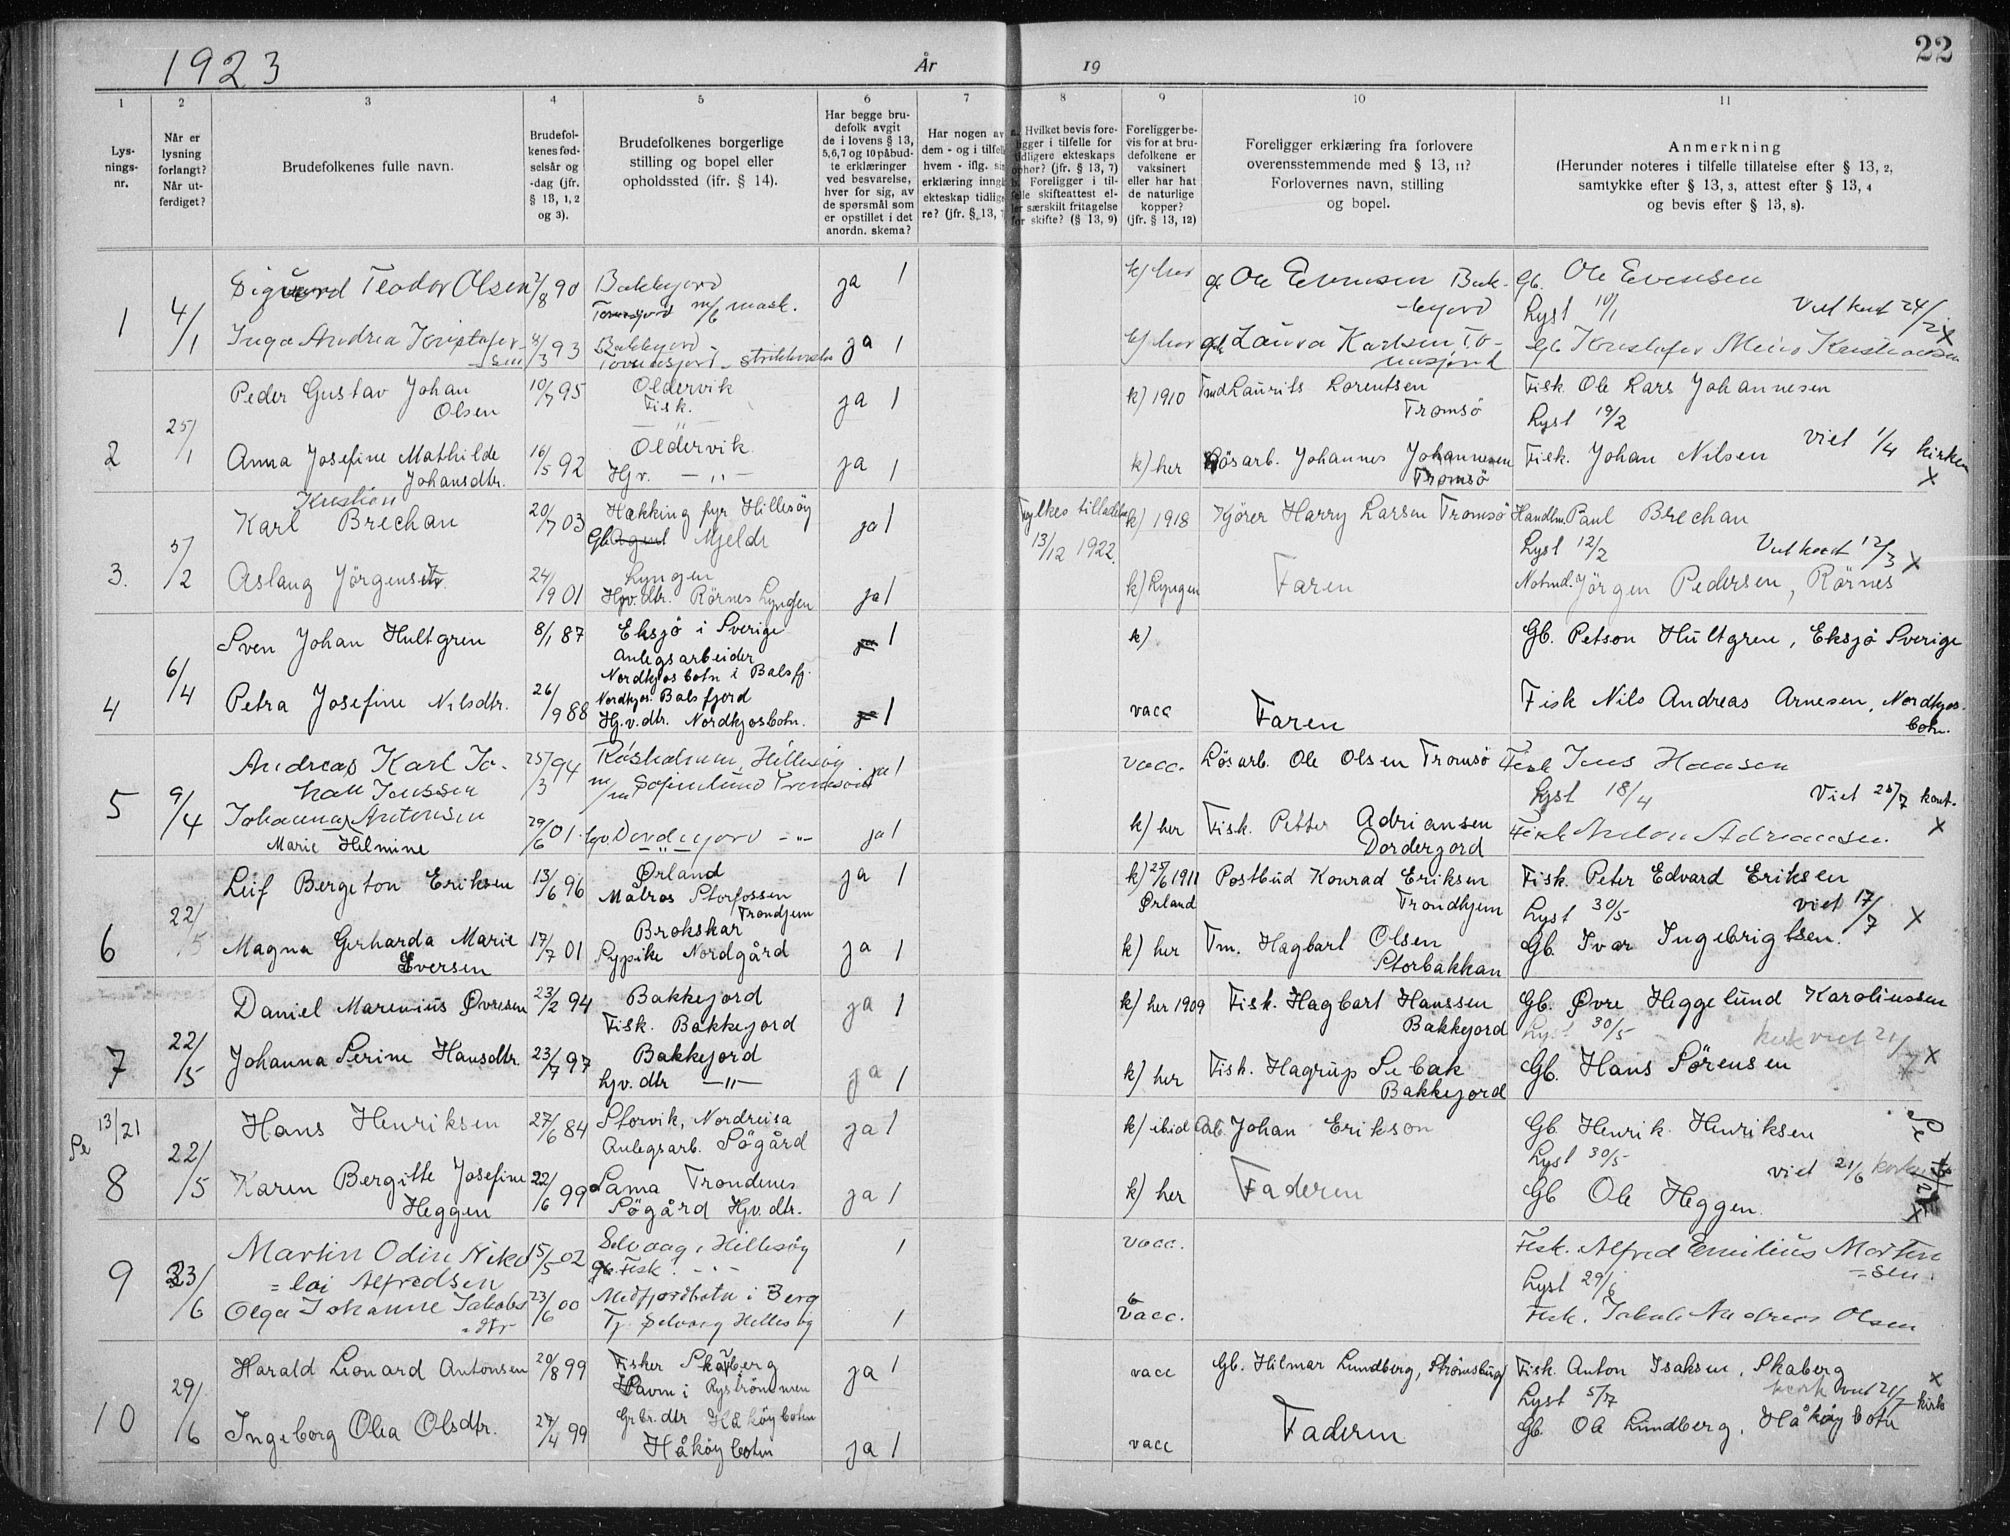 1923
År
19
22
1
2
3
4
5
6
7
8
9
10
11
Lys-
nings-
nr.
Når er
lysning
forlangt?
Når ut-
ferdiget?
Brudefolkenes fulle navn.
Brudefol-
kenes fød-
selsår og
-dag (jfr.
§ 13, 1, 2
og 3).
Brudefolkenes borgerlige
stilling og bopel eller
opholdssted (ifr. § 14).
Har begge bru-
defolk avgit
de i lovens § 13,
5, 6, 7 og 10 påbud-
te erklæringer
ved besvarelse,
hver for sig, av
de spørsmål som
er opstillet i det
anordn. skema?
Har nogen av
dem - og i tilfelle
hvem - iflg. sin
erklæring inngå
ekteskap tidlige
re? (jfr. § 13,
a. Hvilket bevis fore-
ligger i tilfelle for
tidligere ekteskaps
ophør? (jfr. § 13, 7)
b. Foreligger i til-
felle skifteattest el-
ler særskilt fritagelse
for skifte? (§ 13, 9)
Foreligger be-
vis for at bru-
defolkene er
vaksinert
eller har hat
de naturlige
kopper?
(jfr. § 13, 12)
Foreligger erklæring fra forlovere
overensstemmende med § 13, 11?
Forlovernes navn, stilling
og bopel.
Anmerkning
(Herunder noteres i tilfelle tillatelse efter § 13, 2,
samtykke efter § 13, 3, attest efter § 13, 4
og bevis efter § 13, 8).
1 4/1 Sigurd Teodor Olsen 2/8 90 Bakkejord ja 1 k) her Ole Evensen Bak- Gb. Ole Evensen
m/b mask. kejord Lyst 10/1 Viet kont 24/2 x
Inga Andrea Kristofer- 8/3 93 Bakkejord ja 1 k) her Laura Karlsen To- Gb Kristofer Meier Kristiansen
sen
2 25/1 Peder Gustav Johan 10/7 95 Oldervik ja 1 k) 1910 Laurits Lorentsen Fisk. Ole Lars Johannesen
Olsen Fisk. —"— Tromsö Lyst 19/2
Anna Josefine Mathilde 16/5 92 Oldervik ja 1 k) her Lösarb. Johannes Johannesen Fisk. Johan Nilsen viet 1/4 kirken
Johansdtr. Hjv. —"— Tromsö x
3. 5/2 Kristian
Karl Brechan 20/7 03 Hekking fyr Hillesöy ja 1 Fylkes tillatelse k) 1918 Kjörer Harry Larsen Tromsö Handlm. Paul Brechan
Gb Mjelde 13/12 1922. Lyst 12/2 Viet kont 12/3 x
Aslaug Jörgensdtr. 24/9 01 Lyngen ja 1 k) Lyngen Faren Notmd. Jörgen Pedersen, Rörnes
Hjv. dtr. Rörnes Lyngen
4 6/4 Sven Johan Hultgren 8/1 87 Eksjö i Sverige 1 k) Gb. Petson Hultgren, Eksjö Sverige
Anlegsarbeider
Nordkjosbotn i Balsfj.
Petra Josefine Nilsdtr. 26/9 88 Nordkjos. Balsfjord 1 vacc Faren Fisk Nils Andreas Arnesen, Nordkjos-
Hj.v.dtr. Nordkjosbotn. botn.
5 9/4 Andreas Karl Jo- 25/3 94 Risholmen, Hillesöy ja 1 vacc. Lösarb. Ole Olsen Tromsö Fisk Jens Hansen
han Jenssen Sofienlund Tromsösund Lyst 18/4 Viet 25/7 kont.
Johanna Antonsen 29/6 01 ja 1 k) her Fisk. Petter Adriansen Fisk Anton Adriansen. x
Marie Helmine Dorderjord
6 22/5 Leif Bergeton Eriksen 13/6 96 Ørland ja 1 k) 25/6 1911 Postbud Konrad Eriksen Fisk. Peter Edvard Eriksen
Matros Storfossen Ørland Trondhjem Lyst 30/5 viet 17/7 x
Trondjem
Magna Gerharda Marie 17/7 01 Brokskar ja 1 k) her Tm. Hagbart Olsen Gb. Ivar Ingebrigtsen.
Iversen Sypike Nordgård Storbakkan
7 22/5 Daniel Marenius Øvresen 23/2 94 Bakkejord ja 1 k) her 1909 Fisk. Hagbart Hanssen Gb. Øvre Heggelund Karoliussen
Fisk. Bakkejord Bakkejord Lyst 30/5 kirk viet 21/7 x
Johanna Serine Hansdtr. 23/7 97 Bakkejord ja 1 k) her Fisk. Hagrup Sebak Gb. Hans Sörensen x
hjv. dtr —"— Bakkejord
Se 13/21
8 22/5 Hans Henriksen 27/6 84 Storvik, Nordreisa ja 1 k) ibid Arb. Johan Erikson Gb Henrik Henriksen Se
Anlegsarb. Sögård Lyst 30/5
Karen Bergitte Josefine 22/6 99 Sama Trondenes ja 1 k) her Faderen viet 21/6
Heggen Sögård Hjv. dtr. Gb Ole Heggen. x
9 23/6 Martin Odin Niko 15/5 02 Selvaag, Hillesöy 1 vacc. Fisk. Alfred Emilius Morten
=lai Alfredsen Fisk. -"- =sen.
Lyst 29/6
Olga Johanne Jakobs 23/6 00 Medfjordbotn i Berg 1 vacc. Fisk. Jakob Andreas Olsen
=dtr Tj. Selvaag Hillesöy
10 29/6 Harald Leonard Antonsen 20/8 99 Fisker Skaberg ja 1 vacc Gb. Hilmar Lundberg, Strömsburg Fisk. Anton Isaksen, Skaberg x
Havn i Ryströmmen Lyst 5/7 kirk viet 21/7 kirk
Ingeborg Olea Olsdtr. 27/4 99 Grbr. dtr Håköybotn ja 1 vacc Faderen Gb. Ole Lundberg, Håköybotn
Håköybotn